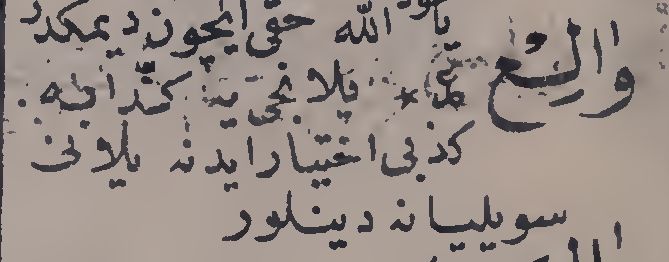 یاخود الله حقی ایچون دیمکدر
والشع یلانجی یه کذابه
کذبی اختیار ایدنه یلانی
سویلییانه دینلور